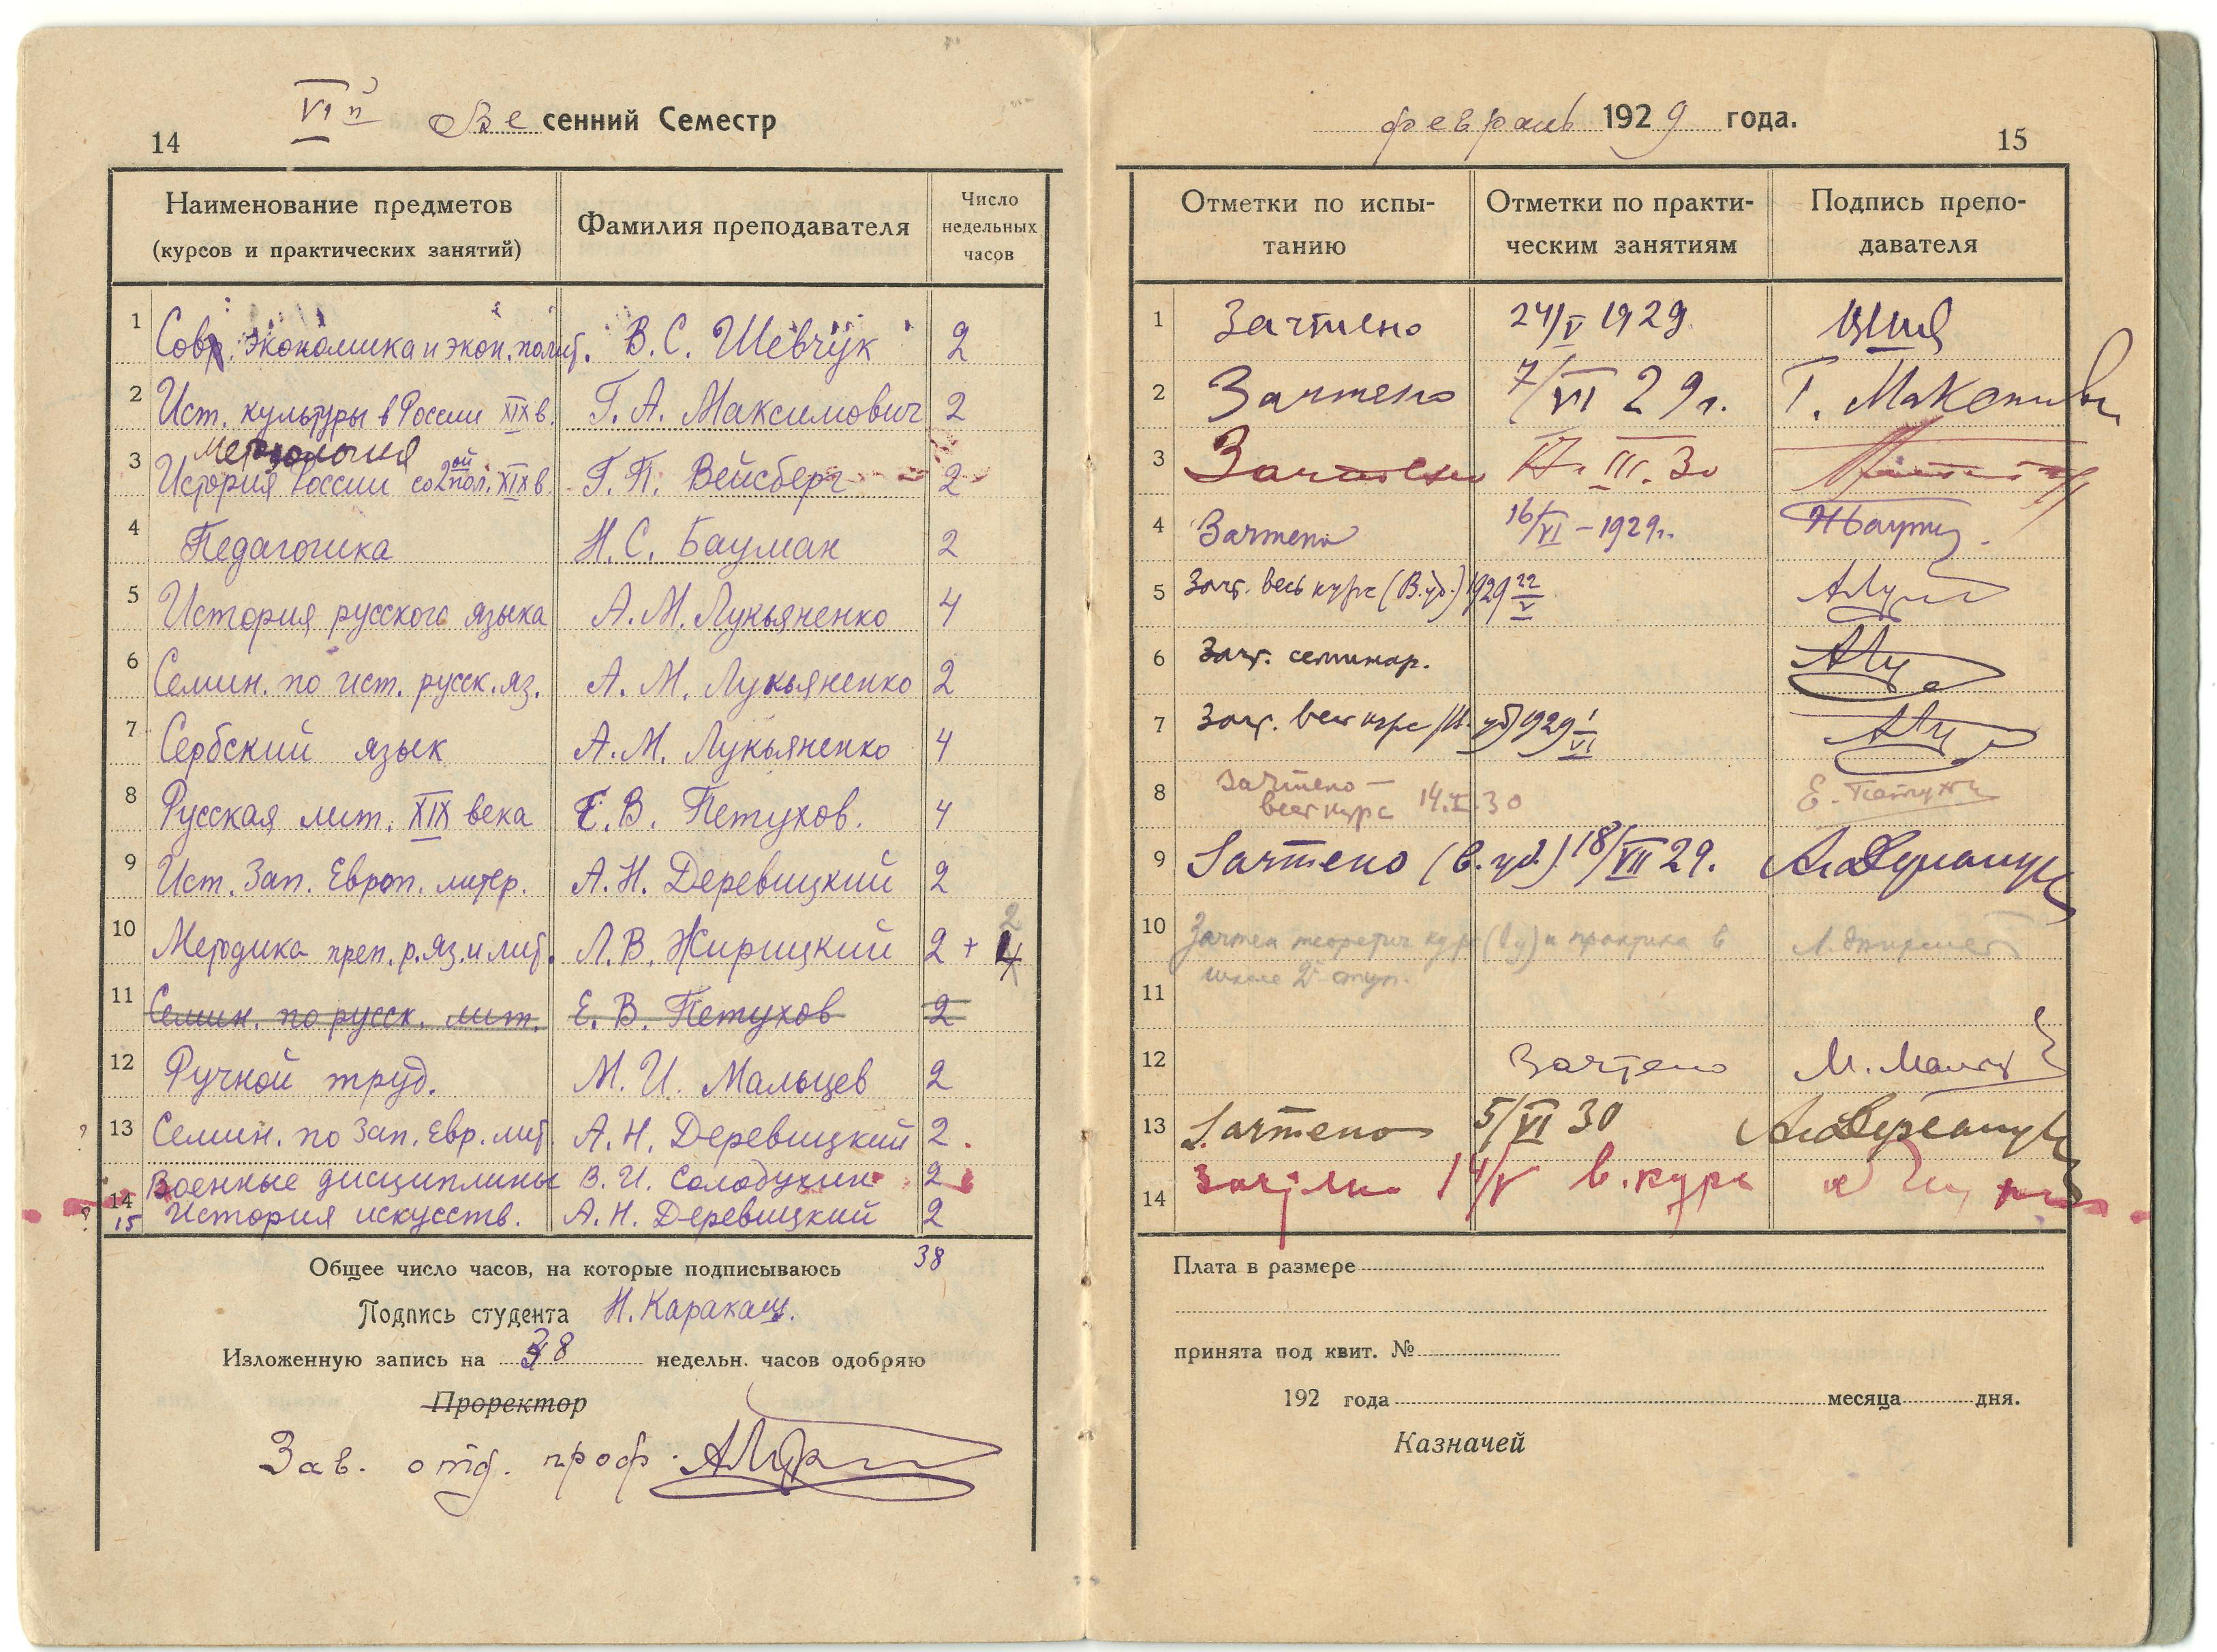 14
VIй Весенний Семестр
Наименование предметов
(курсов и практических занятий)
Фамилия преподавателя
Число
недельных
часов
1 Совр. экономика и экон. полит. В. С. Шевчук 2
2 Ист. культуры в России XIX в. Г. А. Максимович 2
Методология
3 История России со 2ой пол. XIX в. Г. П. Вейсберг 2
4 Педагогика Н. С. Бауман 2
5 История русского языка А. М. Лукьяненко 4
6 Семин. по ист. русск. яз. А. М. Лукьяненко 2
7 Сербский язык А. М. Лукьяненко 4
8 Русская лит. XIX века Е. В. Петухов. 4
9 Ист. Зап. Европ. литер. А. Н. Деревицкий 2
2
10 Методика преп. р. яз. и лит. Л. В. Жирицкий 2 + 4
11 Семин. по русск. лит. Е. В. Петухов 2
12 Ручной труд. М. И. Мальцев 2
? 13 Семин. по Зап. Евр. лит. А. Н. Деревицкий 2
14 Военные дисциплины В. И. Солодухин 2
? 15 История искусств. А. Н. Деревицкий 2
Общее число часов, на которые подписываюсь 38
Подпись студента Н. Каракаш.
Изложенную запись на 38 недельн. часов одобряю
Проректор
Зав. отд. проф.
февраль 1929 года.
15
Отметки по испы-
танию
Отметки по практи-
ческим занятиям
Подпись препо-
давателя
1 Зачтено 24/V 1929.
2 Зачтено 7/VI 29 г. Г. Максимович
3 Зачтено 17. III. 30
4 Зачтено 16/VI – 1929 г. НБауман
5 Зачт. весь курс (В. уд.) 1929 22/V
6 Зачт. семинар.
7 Зачт. весь курс (В. уд) 1929 1/VI
8 Зачтено –
весь курс 14.I.30 Е. Петухов
9 Зачтено (в. уд.) 18/VII 29.
10 Зачтен теоретич курс (ву) и практика в
школе 2й ступ.
11
12 Зачтено М. Мальцев
13 Зачтено 5/VI 30
14 Зачтено 14/V в. курс
Плата в размере
принята под квит. №
192 года месяца дня.
Казначей